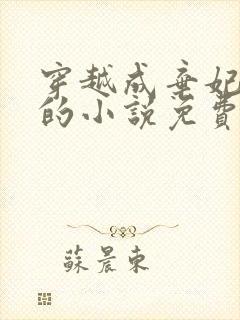 穿越成弃妃
的小說免費
蘇晨東